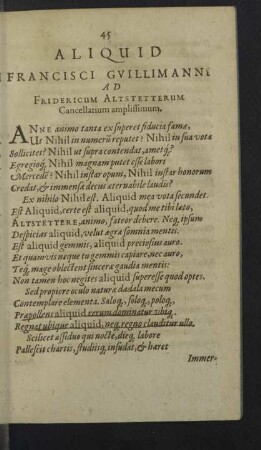 45
ALIQUID
FRANCISCI GVILLIMANNI
AD
FRIDERICUM ALTSTETTERUM
Cancellarium amplissimum.
ANNE animo tanta exsuperet fiducia famæ,
Ut Nihil in numerũ reputet? Nihil in sua vota
Sollicitet? Nihil ut supra contendat, ametq́?
Egregioq́, Nihil magnam putet esse labori
Mercedẽ? Nihil instar opum, Nihil instar honorum
Credat, & immensa decus æternabile laudis?
Ex nihilo Nihil est. Aliquid mea vota secundet.
Est Aliquid, certe est aliquid, quod me tibi lato,
ALTSTETTERE, animo, fateor debere. Neq, ipsum
Despicias aliquid, velut ægra somnia mentis.
Est aliquid gemmis, aliquid preciosius auro.
Et quamvis neque tu gemmis capiare, nec auro,
Teq, mage oblectent sincera gaudia mentis:
Non tamen hoc negites aliquid superesse quod optes.
Sed propiore oculo naturæ dædala mecum
Contemplare elementa. Saloq, soloq, poloq,
Præpollens aliquid rerum dominatur ubiq.
Regnat ubique aliquid, neq, regno clauditur ullo.
Scilicet assiduo qui nocte, dieq, labore
Pallescit chartis, studiisq, insudat, & hæret
Immer-